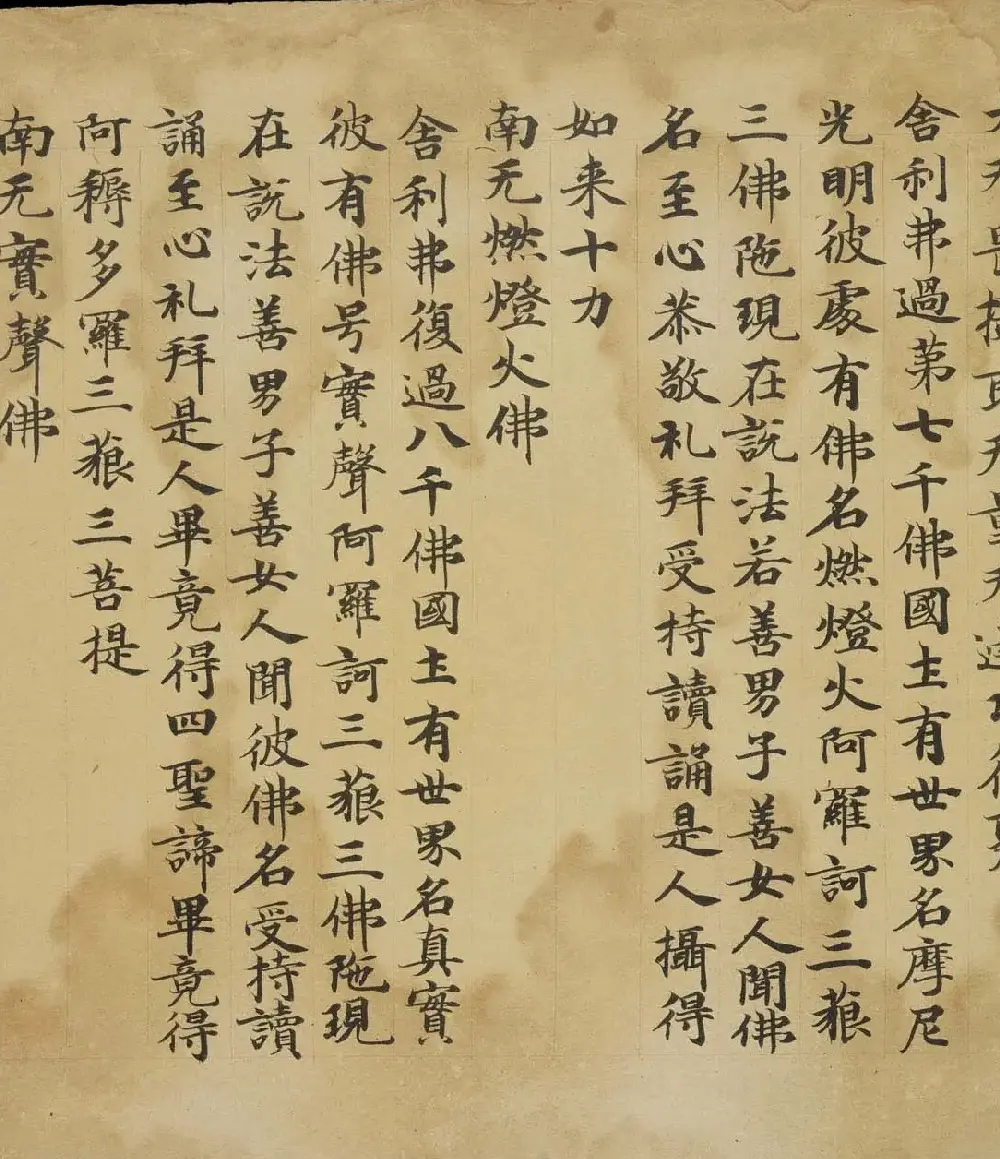 舍利弗過第七千佛國土有世界名摩尼
光明彼處有佛名燃燈火阿羅訶三藐
三佛陁現在説法若善男子善女人聞佛
名至心恭敬礼拜受持讀誦是人攝得
如来十力
南无燃燈火佛
舍利弗復過八千佛國土有世界名真實
彼有佛号實聲阿羅訶三藐三佛陁現
在説法善男子善女人聞彼佛名受持讀
誦至心礼拜是人畢竟得四聖諦畢竟得
阿耨多羅三藐三菩提
南无實聲佛